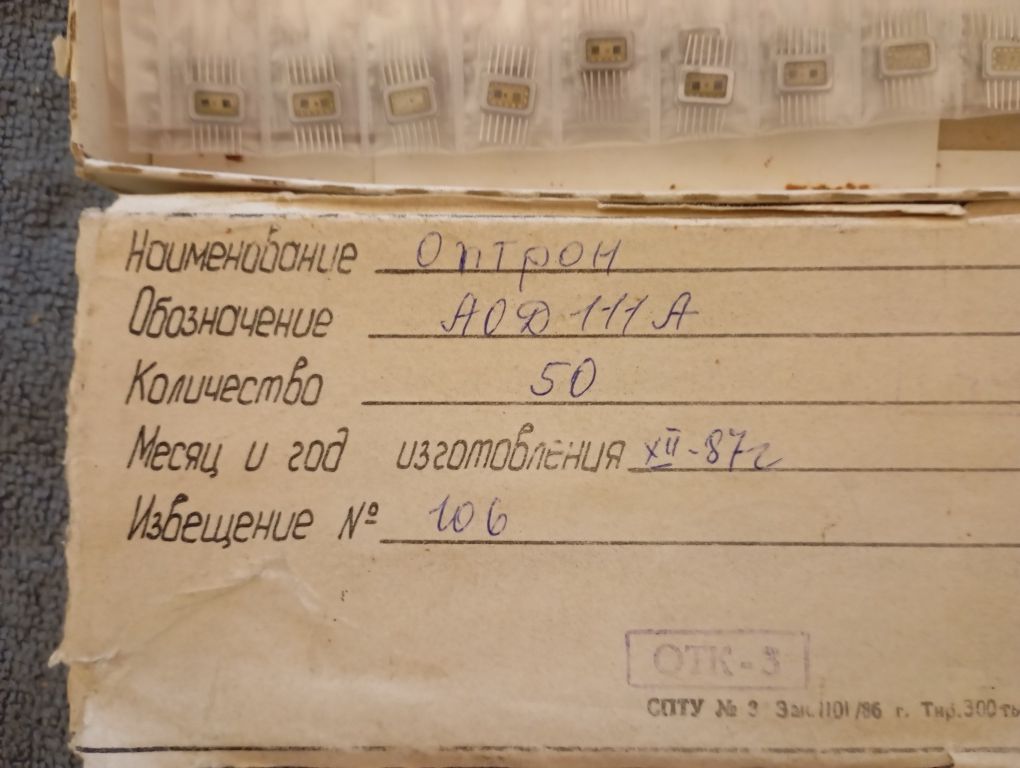 Наименование Оптрон
Обозначение АОД 111 А
Количество 50
Месяц и год изготовления XII-87г
Извещение № 106
ОТК-3
СПТУ № 3 Зак. 1101/86 г. Тир. 300 ты